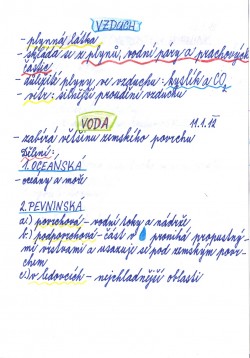 VZDUCH
- plynná látka
- skládá se z plynů, vodní páry a prachových
částic
- důležité plyny ve vzduchu: kyslík a CO2
- vítr: silnější proudění vzduchu
VODA
11.1.12
- zabírá většinu zemského povrchu
Dělení:
1. OCEÁNSKÁ
- oceány a moře
2. PEVNINSKÁ
a) povrchová - vodní toky a nádrže
b) podpovrchová - část v proniká propustný-
mi vrstvami a usazuje se pod zemským povr-
chem
c) v ledovcích - nejchladnější oblasti